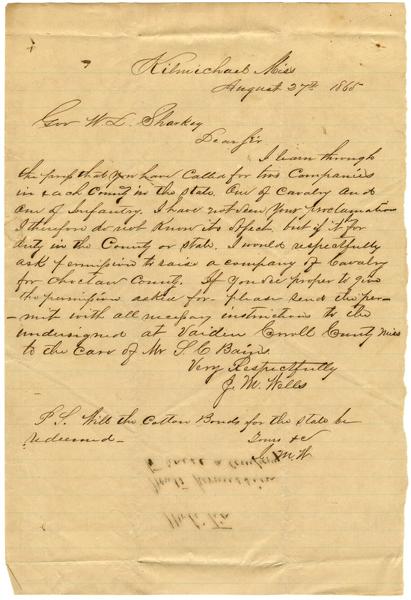 Kilmichael Miss
August 27th 1865
Gov W. L. Sharkey
Dear Sir
I learn through
the press that you have Called for two Companies
in each County in the State. One of Cavalry And
One of Infantry. I have not seen Your proclamation
I therefore do not know its effect. but if it for
duty in the County or State. I would respectfully
ask permission to raise a company of Cavalry
for Choctaw County. If you see proper to give
the permission asked for please send the per-
mit with all necessary instructions to the
undersigned at Vaiden Carroll County Miss
to the care of Mr S. C Bains
Very Respectfully
J. M. Wells
P. S. Will the Cotton Bonds for the State be
redeemed— Yours &c
J. M. W.